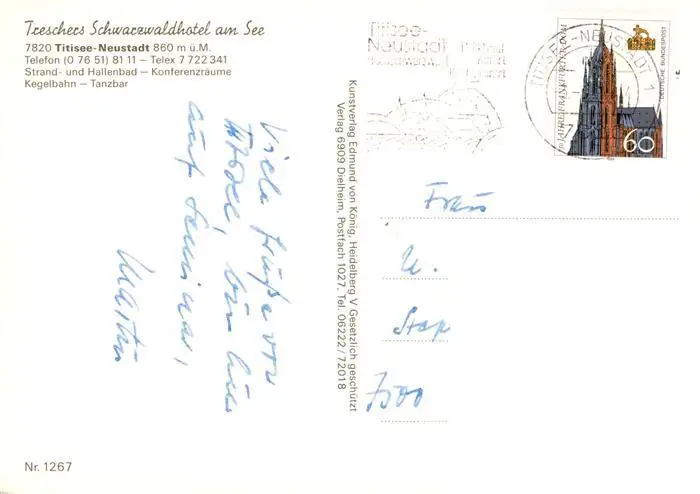 Treschers Schwarzwaldhotel am See
7820 Titisee-Neustadt 860 m ü.M.
Telefon (0 76 51) 81 11 – Telex 7 722 341
Strand- und Hallenbad – Konferenzräume
Kegelbahn – Tanzbar
Viele Grüße vom
Titisee, bin hier
auf Seminar,
Martin
Nr. 1267
Kunstverlag Edmund von König, Heidelberg V Gesetzlich geschützt
Verlag 6909 Dielheim, Postfach 1027, Tel. 06222/72018
Titisee-
Neustadt
Hochschwarzwald
TITISEE-NEUSTADT 1
JAHRE FRANKFURTER DOM
DEUTSCHE BUNDESPOST
60
Frau
U.
Step
7500